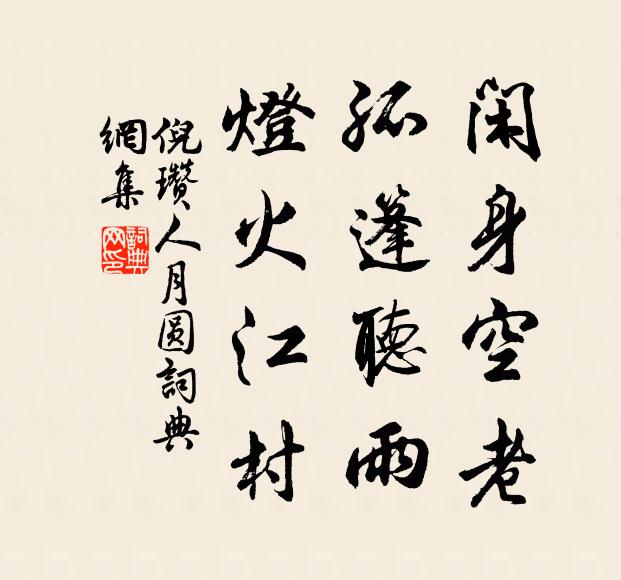 閑身空老
孤篷聽雨
燈火江村
倪瓚人月圓詞典
網集
詞典網印